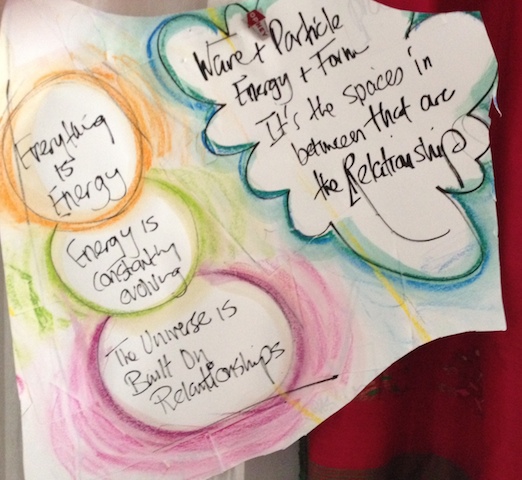 Wave + Particle
Energy + Form
It's the spaces in
between that are
the Relationships
Everything
is
Energy
Energy is
constantly
evolving
The Universe is
Built On
Relationships